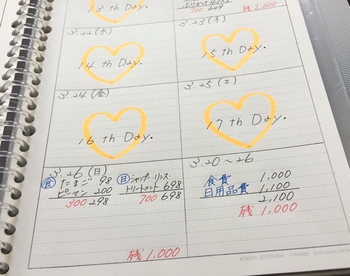 13 th Day.
700 649
残2,000
3.22(水)
3.23(木)
14 th Day.
15 th Day.
3.24(金)
3.25(土)
16 th Day.
17 th Day.
3.26(日)
食 たまご 98
ピーマン 200
300 298
日 シャンプー・リンス
トリートメント 698
700 698
残 1,000
3.20~26
食費 1,000
日用品費 1,100
2,100
残 1,000